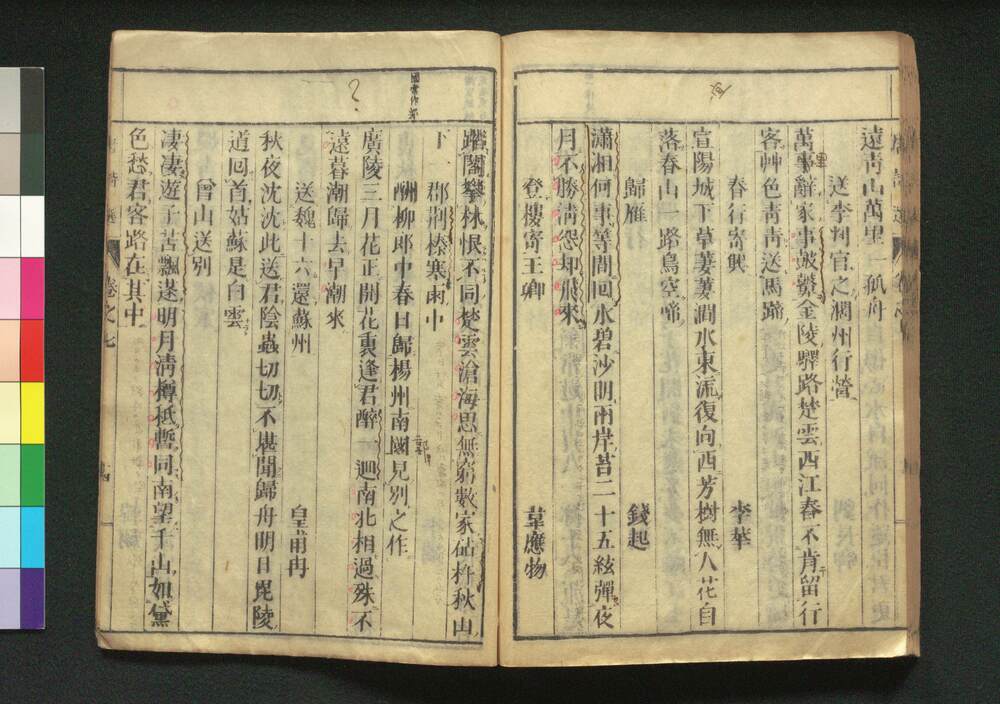 遠靑山萬里一孤舟
送李判官之潤州行營
萬里辭家事皷鼙金陵驛路楚雲西江春不肯留行
客艸色靑靑送馬蹄
春行寄興
李華
宜
宣陽城下草萋萋澗水東流復向西芳樹無人花自
落春山一路鳥空啼
歸雁
錢起
瀟湘何事等閒回水碧沙明兩岸苔二十五絃彈夜
月不勝淸怨却飛來
登樓寄王卿
韋應物
踏閣攀林恨不同楚雲滄海思無窮數家砧杵秋山
下一郡荆榛寒雨中
酬柳郎中春日歸楊州南國見別之作
國當作郭
郭
廣陵三月花正開花裏逢君醉一迴南北相過殊不
遠暮潮歸去早潮來
送魏十六還蘇州
皇甫冉
秋夜沈沈此送君陰蟲切切不堪聞歸舟明日毘陵
道回首姑蘇是白雲
曾山送別
凄凄遊子苦飄蓬明月淸樽祗暫同南望千山如黛
色愁君客路在其中
唐詩選
卷之七